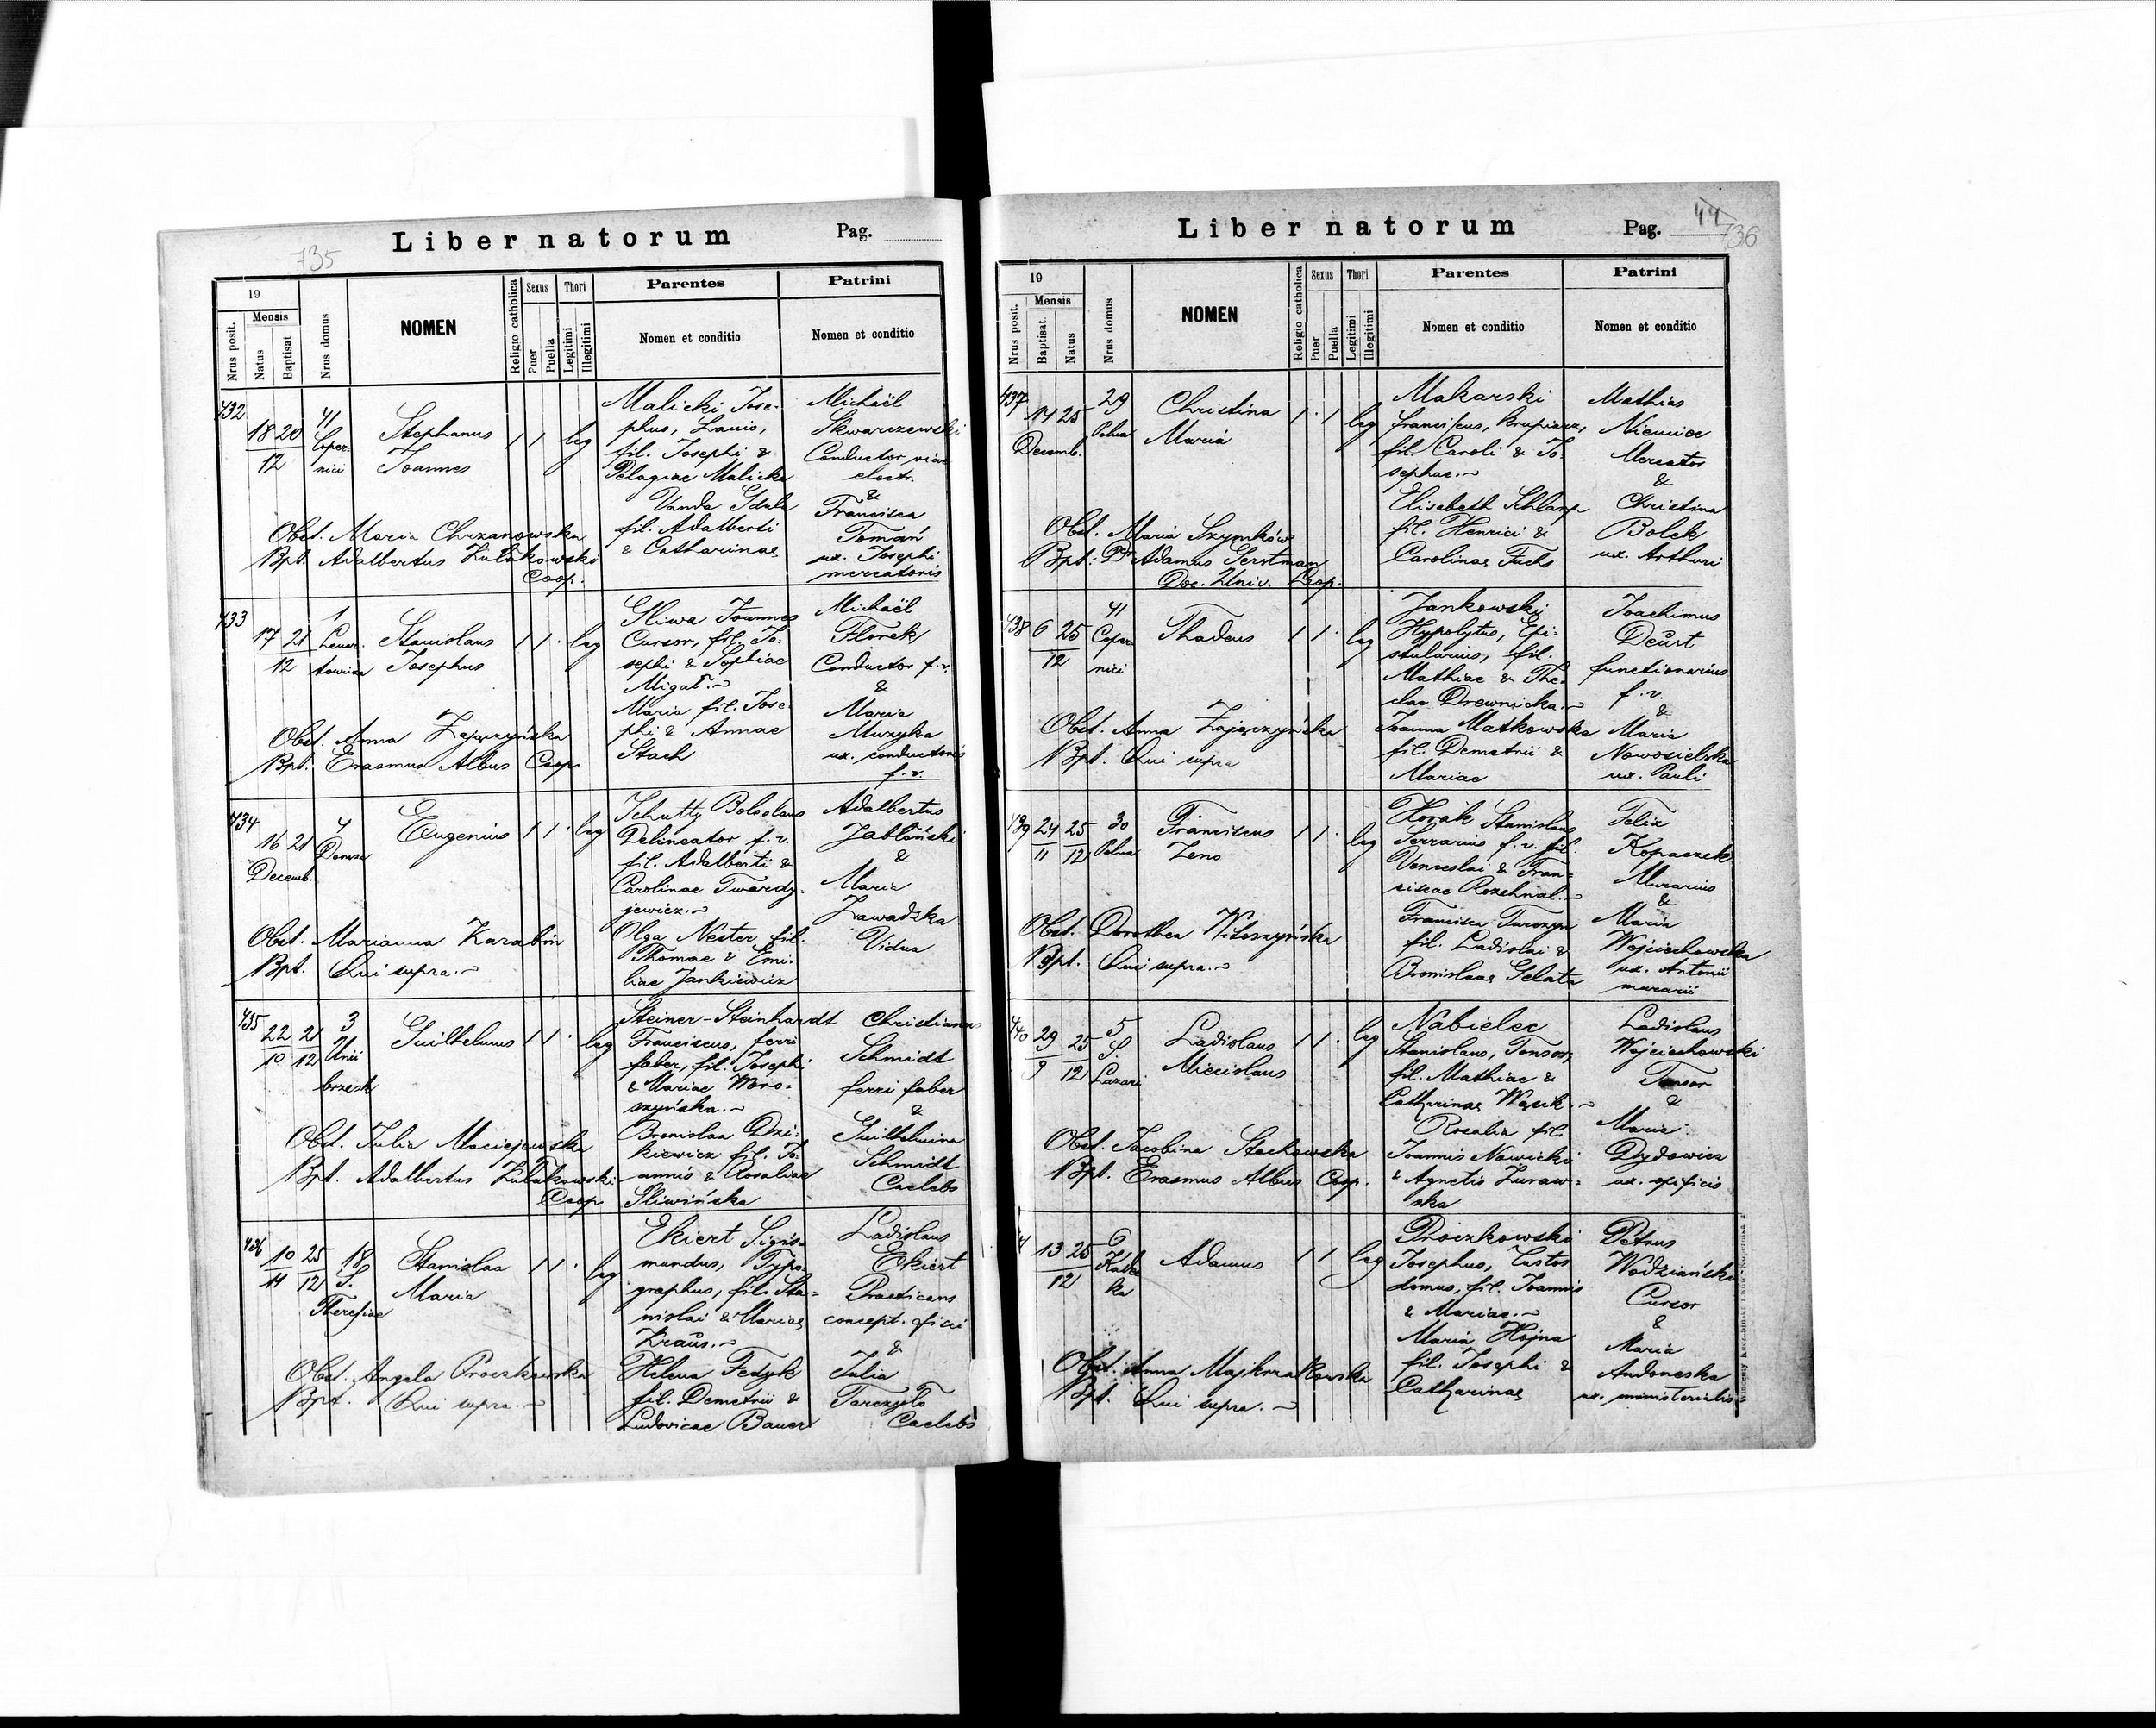 735
Liber natorum
Pag.
19
Mensis
Nrus posit.
Natus
Baptisat
Nrus domus
NOMEN
Religio catholica
Sexus
Puer
Puella
Thori
Legitimi
Illegitimi
Parentes
Nomen et conditio
Patrini
Nomen et conditio
432
18 20
12
41
Coper-
nici
Stephanus
Joannes
1 1 leg
Malicki Jose-
phus, Lanio,
fil. Josephi &
Pelagiae Malicka
Vanda Gdula
fil. Adalberti
& Catharinae
Michaël
Skwarczewski
Conductor viae
electr.
&
Francisca
Tomań
ux. Josephi
mercatoris
Obst. Maria Chrzanowska
Bpt. Adalbertus Żułakowski
Coop.
433
17 21
12
1
Lenar-
towicza
Stanislaus
Josephus
1 1 . leg
Sliwa Joannes
Cursor, fil. Jo-
sephi & Sophiae
Migał.~
Maria fil. Jose-
phi & Annae
Stach
Michaël
Florek
Conductor f.v.
&
Maria
Muzyka
ux. conductoris
f.v.
Obst. Anna Zajączyńska
Bpt. Erasmus Albus Coop
434
16 21
Decemb.
4
Domsa
Eugenius
1 1 . leg
Schutty Boleslaus
Delineator f.v.
fil. Adalberti &
Carolinae Twardy-
jewicz.~
Olga Nester fil.
Thomae & Emi-
liae Jankiewicz
Adalbertus
Jabłoński
&
Maria
Zawadzka
Vidua
Obst. Marianna Karabin
Bpt. Qui supra.~
435
22 21
10 12
3
Unii
brzesk
Guilhelmus
1 1 . leg
Steiner-Steinhardt
Franciscus, ferri
faber, fil. Josephi
& Mariae Woro-
szyńska.~
Bronislaa Dzi-
kiewicz fil. Jo-
annis & Rosaliae
Śliwińska
Christianus
Schmidt
ferri faber
&
Guilhelmina
Schmidt
Caelebs
Obst. Julia Maciejewska
Bpt. Adalbertus Żułakowski
Coop
436
10 25
11 12
18
S.
Theresiae
Stanislaa
Maria
1 1 . leg
Ekiert Sigis-
mundus, Typo-
graphus, fil. Sta-
nislai & Mariae
Kraus.~
Helena Fedyk
fil. Demetrii &
Ludovicae Bauer
Ladislaus
Ekiert
Practicans
concept. fisci
&
Julia
Tarczyło
Caelebs
Obst. Angela Proczkowska
Bpt. Qui supra.~
Liber natorum
Pag. 44
736
19
Mensis
Nrus posit.
Baptisat.
Natus
Nrus domus
NOMEN
Religio catholica
Sexus
Puer
Puella
Thori
Legitimi
Illegitimi
Parentes
Nomen et conditio
Patrini
Nomen et conditio
437
14 25
Decemb.
29
Polna
Christina
Maria
1 . 1 leg
Makarski
Franciscus, krupiarz,
fil. Caroli & Jo-
sephae.~
Elisabeth Schlarp
fil. Henrici &
Carolinae Fuchs
Mathias
Niemiec
Mercator
&
Christina
Bolek
ux. Arthuri
Obst. Maria Szymków
Bpt. Dr Adamus Gerstman
Doc. Univ. Coop.
438
6 25
12
41
Coper
nici
Thadeus
1 1 . leg
Jankowski
Hypolytus, Epi-
stularius, fil.
Mathiae & The-
clae Drewnicka.~
Joanna Matkowska
fil. Demetrii &
Mariae
Joachimus
Deurt
functionarius
f.v.
&
Maria
Nowosielska
ux. Pauli
Obst. Anna Zajączyńska
Bpt. Qui supra
439
24 25
11 12
30
Polna
Franciscus
Zeno
1 1 . leg
Horák Stanislaus
Serrarius f.v. fil.
Venceslai & Fran-
ciscae Rozehnal.~
Francisca Turczyn
fil. Ladislai &
Bronislaae Gelata
Felix
Kopaczek
Murarius
&
Maria
Wojciechowska
ux. Antonii
murarii
Obst. Dorothea Witoszyńska
Bpt. Qui supra.~
440
29 25
9 12
5
S.
Lazari
Ladislaus
Miecislaus
1 1 . leg
Nabielec
Stanislaus, Tonsor,
fil. Mathiae &
Catharinae Wąsik.~
Rosalia fil.
Joannis Nowicki
& Agnetis Żuraw-
ska
Ladislaus
Wojciechowski
Tonsor
&
Maria
Dydowicz
ux. opificis
Obst. Jacobina Stachowska
Bpt. Erasmus Albus Coop.
13 25
12
6
Kade
ka
Adamus
1 1 leg
Proczkowski
Josephus, Custos
domus, fil. Joannis
& Mariae.~
Maria Hojna
fil. Josephi &
Catharinae
Petrus
Wodziański
Cursor
&
Maria
Andoneska
ux. ministerialis
Obst. Anna Majkrzakowska
Bpt. Qui supra.~